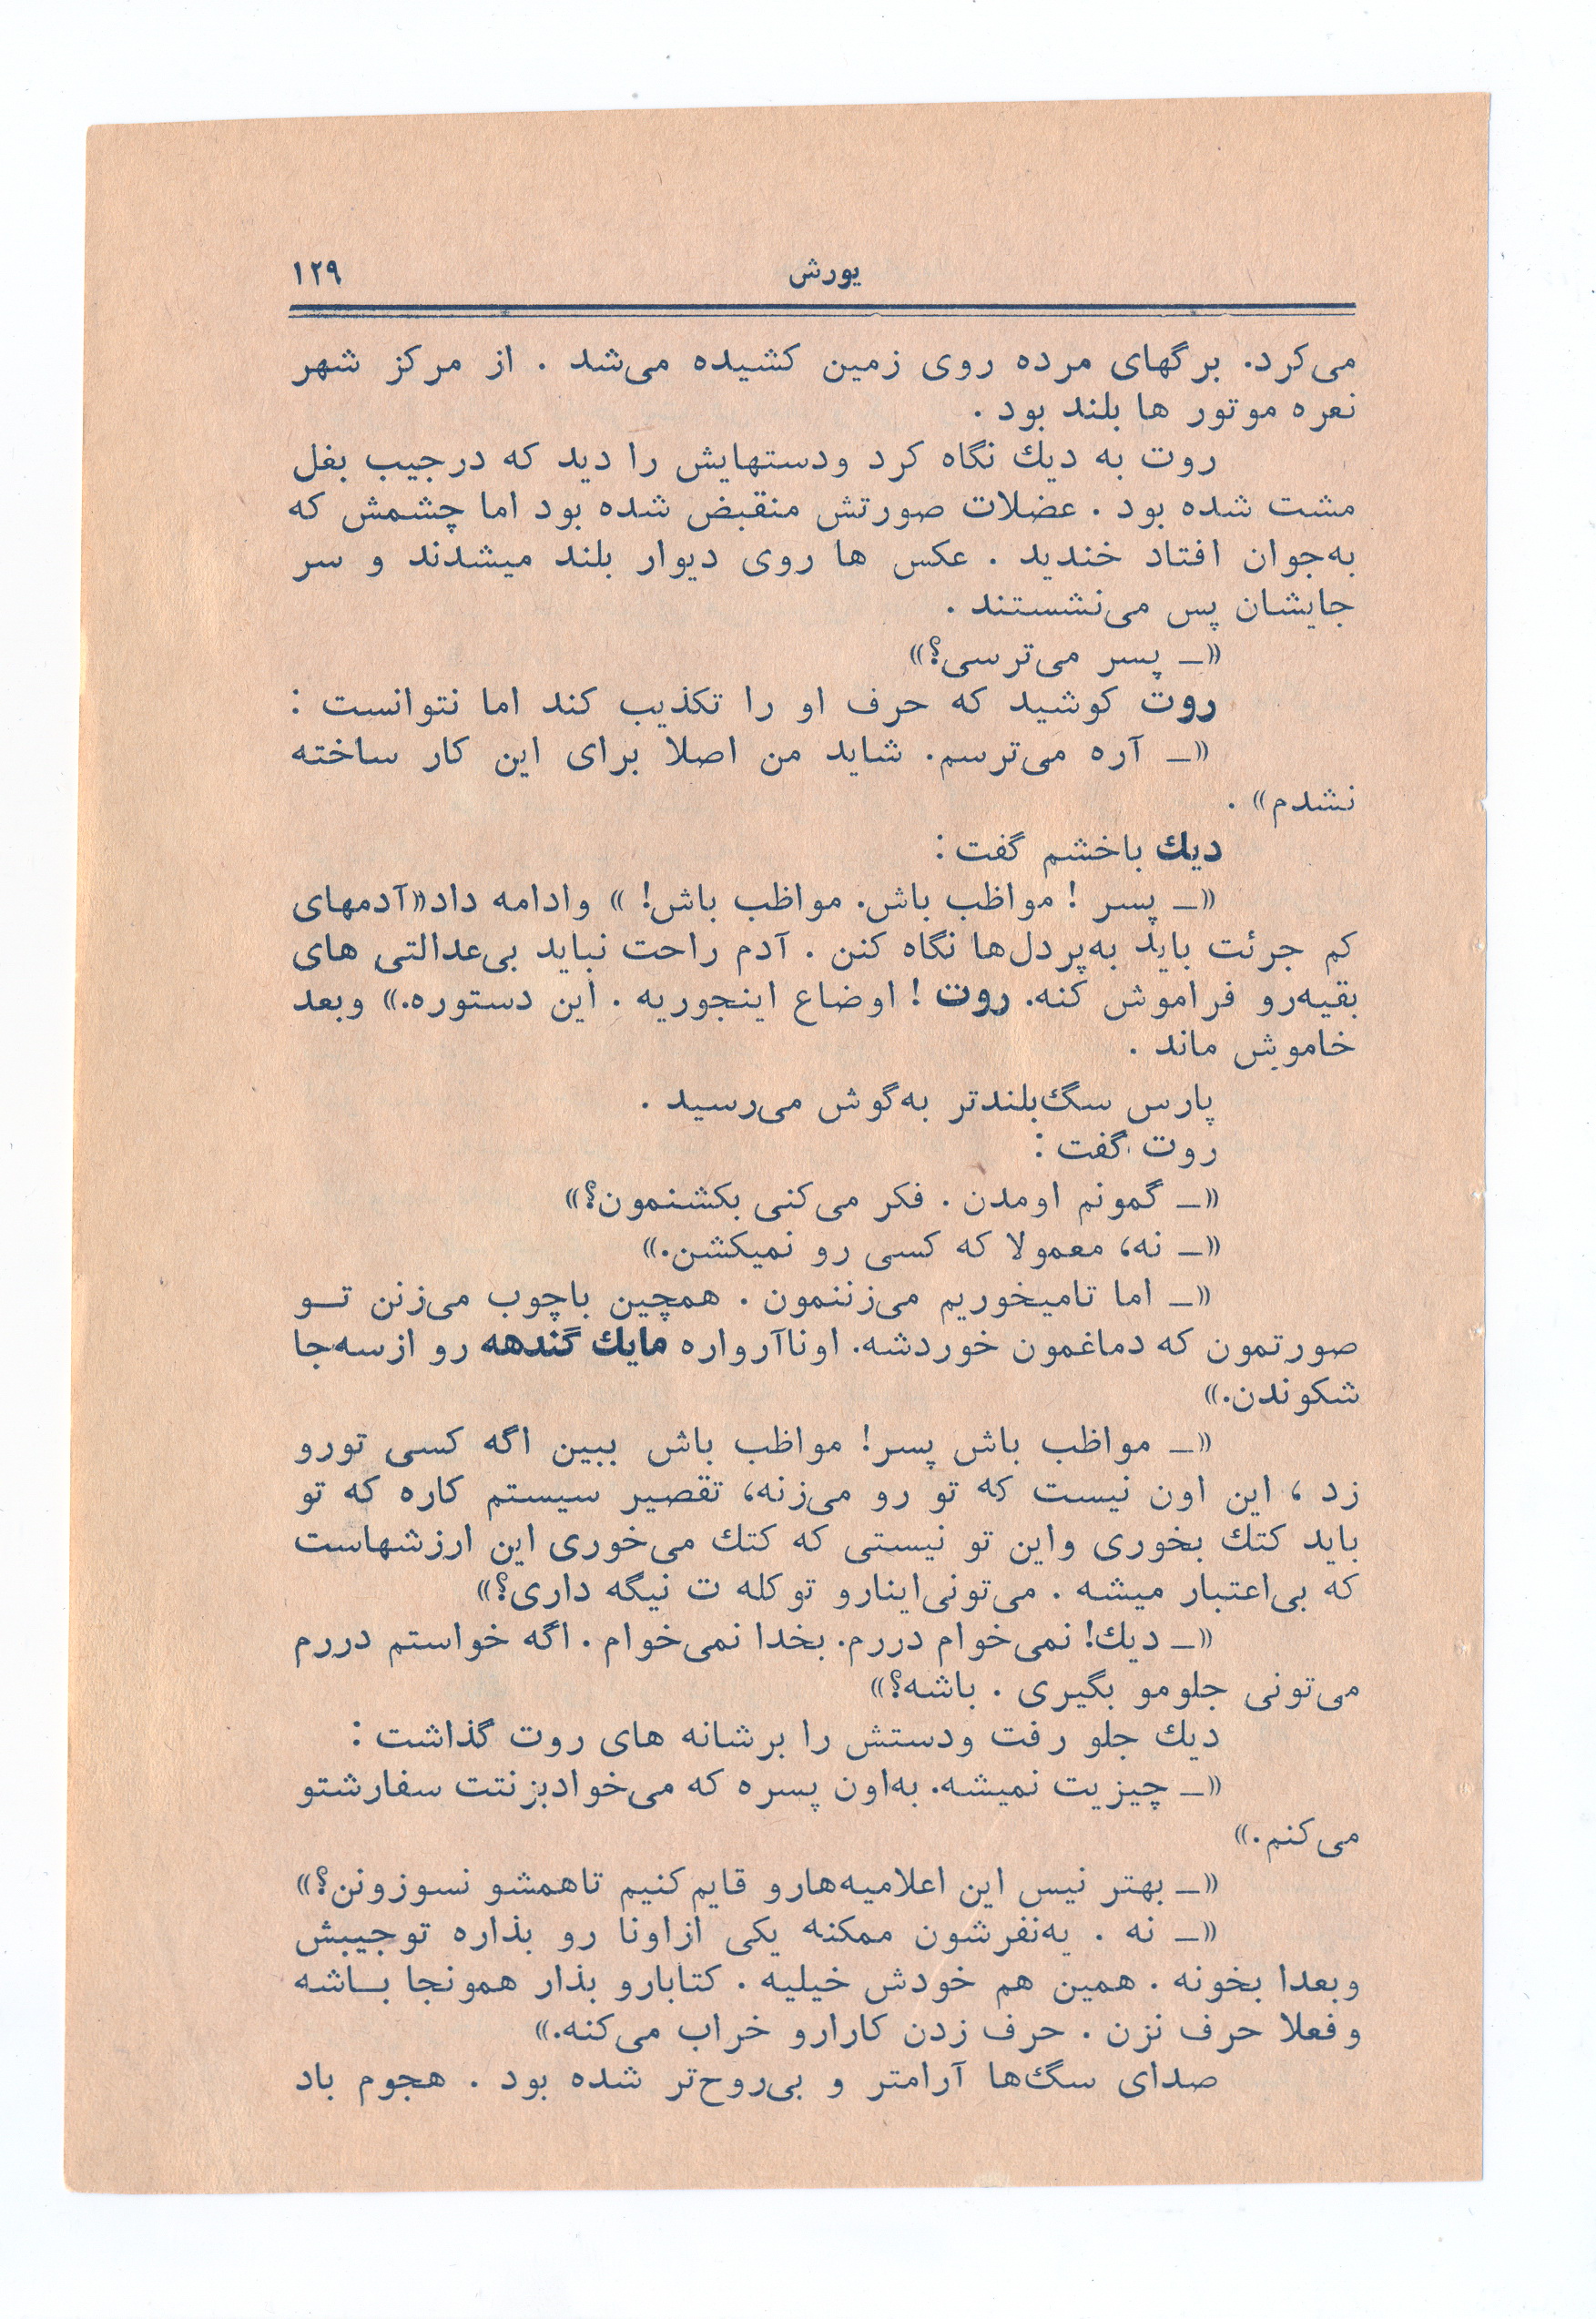 یورش ۱۲۹
می‌کرد. برگهای مرده روی زمین کشیده می‌شد . از مرکز شهر
نعره موتور ها بلند بود .
روت به دیك نگاه کرد ودستهایش را دید که درجیب بغل
مشت شده بود . عضلات صورتش منقبض شده بود اما چشمش که
به‌جوان افتاد خندید . عکس ها روی دیوار بلند میشدند و سر
جایشان پس می‌نشستند .
«ـ پسر می‌ترسی؟»
روت کوشید که حرف او را تکذیب کند اما نتوانست :
«ـ آره می‌ترسم. شاید من اصلا برای این کار ساخته
نشدم» .
دیك باخشم گفت :
«ـ پسر ! مواظب باش. مواظب باش! » وادامه داد«آدمهای
کم جرئت باید به‌پر دل‌ها نگاه کنن . آدم راحت نباید بی‌عدالتی های
بقیه‌رو فراموش کنه. روت ! اوضاع اینجوریه . این دستوره.» وبعد
خاموش ماند .
پارس سگ‌بلندتر به‌گوش می‌رسید .
روت گفت :
«ـ گمونم اومدن . فکر می‌کنی بکشنمون؟»
«ـ نه، معمولا که کسی رو نمیکشن.»
«ـ اما تامیخوریم می‌زننمون . همچین باچوب می‌زنن تــو
صورتمون که دماغمون خوردشه. اوناآرواره مایك گندهه رو ازسه‌جا
شکوندن.»
«ـ مواظب باش پسر! مواظب باش ببین اگه کسی تورو
زد ، این اون نیست که تو رو می‌زنه، تقصیر سیستم کاره که تو
باید کتك بخوری واین تو نیستی که کتك می‌خوری این ارزشهاست
که بی‌اعتبار میشه . می‌تونی‌اینارو توکله ت نیگه داری؟»
«ـ دیك! نمی‌خوام دررم. بخدا نمی‌خوام . اگه خواستم دررم
می‌تونی جلومو بگیری . باشه؟»
دیك جلو رفت ودستش را برشانه های روت گذاشت :
«ـ چیزیت نمیشه. به‌اون پسره که می‌خوادبزنتت سفارشتو
می‌کنم.»
«ـ بهتر نیس این اعلامیه‌هارو قایم‌کنیم تاهمشو نسوزونن؟»
«ـ نه . یه‌نفرشون ممکنه یکی ازاونا رو بذاره توجیبش
وبعدا بخونه . همین هم خودش خیلیه . کتابارو بذار همونجا بــاشه
وفعلا حرف نزن . حرف زدن کارارو خراب می‌کنه.»
صدای سگ‌ها آرامتر و بی‌روح‌تر شده بود . هجوم باد